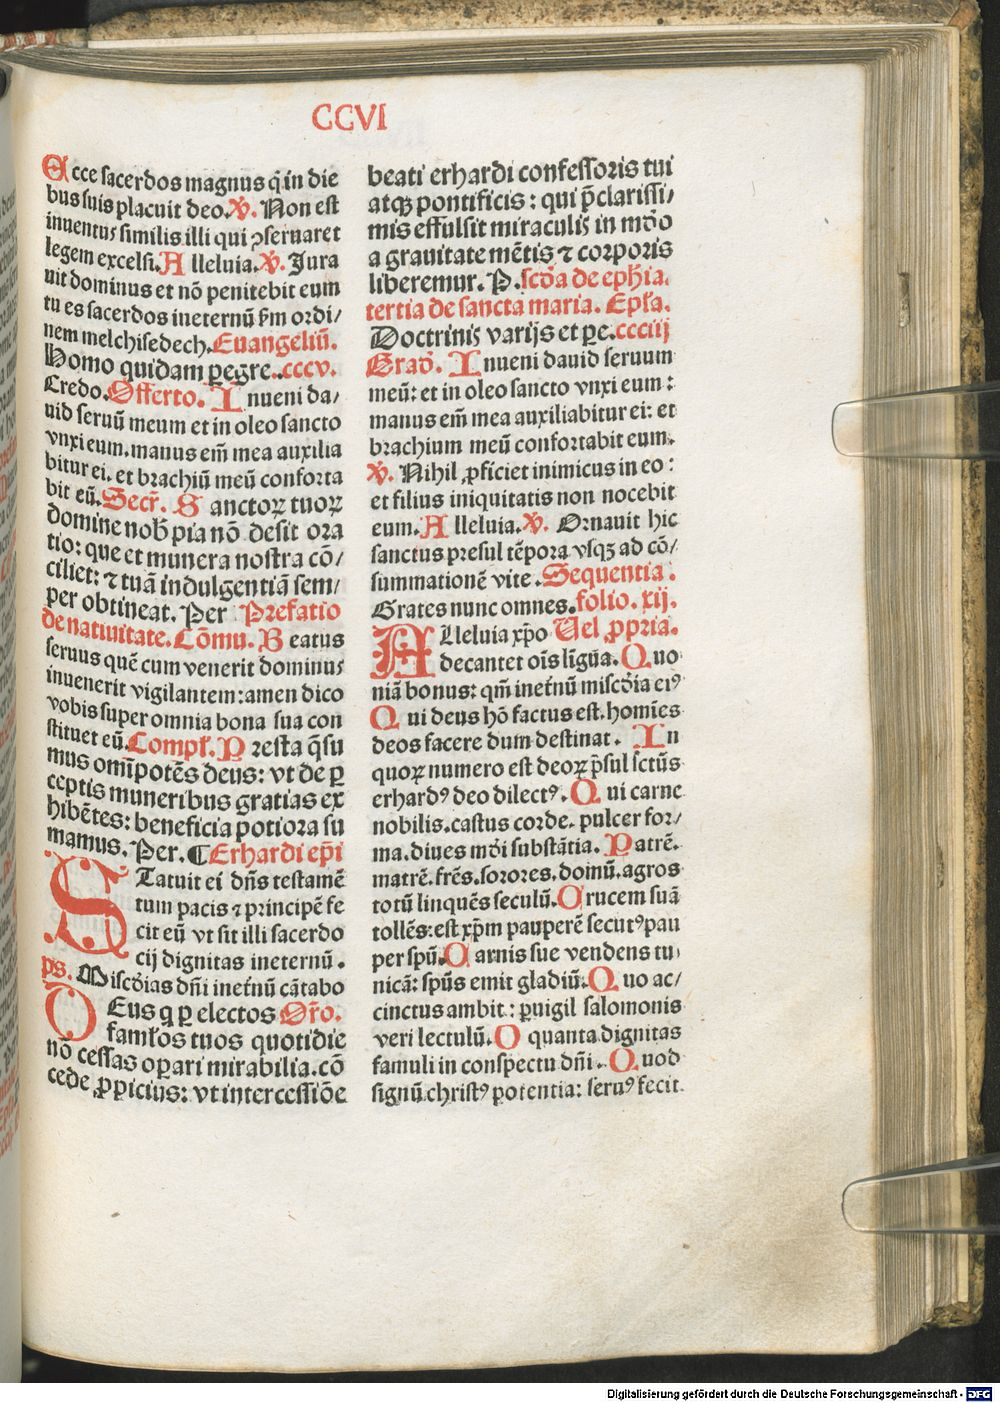 CCVI
Ecce sacerdos magnus q̃ in die
bus suis placuit deo. V̾. Non est
inuentus similis illi qui ꝯseruaret
legem excelsi. Alleluia. V̾. Jura
uit dominus et nõ penitebit eum
tu es sacerdos ineternũ ẜm ordi/
nem melchisedech. Euangeliũ.
Homo quidam ꝑegre..cccv.
Credo. Offerto. Inueni da/
uid seruũ meum et in oleo sancto
vnxi eum. manus em̃ mea auxilia
bitur ei. et brachiũ meũ conforta
bit eũ. Secr̃. Sanctoꝝ tuoꝝ
domine nob̾ pia nõ desit ora
tio: que et munera nostra cõ/
ciliet: ⁊ tuã indulgentiã sem/
per obtineat. Per Prefatio
de natiuitate. Cõmu. Beatus
seruus quẽ cum venerit dominus
inuenerit vigilantem: amen dico
vobis super omnia bona sua con
stituet eũ. Compl̾. Presta q̃su
mus om̃ipotẽs deus: vt de ꝑ
ceptis muneribus gratias ex
hibẽtes: beneficia potiora su
mamus. Per. ¶ Erhardi ep̃i
Statuit ei dñs testamẽ
tum pacis ⁊ principẽ fe
cit eũ vt sit illi sacerdo
cij dignitas ineternũ.
ps. Misc̾dias dñi inet̾nũ cãtabo
Deus q ꝑ electos Or̃o.
faml̾os tuos quotidie
nõ cessas oꝑari mirabilia. cõ
cede ꝓpicius: vt intercessiõe
beati erhardi confessoris tui
atqꝫ pontificis: qui p̃clarissi/
mis effulsit miraculis in mũdo
a grauitate mẽtis ⁊ corporis
liberemur. P. sc̾da de ephia.
tertia de sancta maria. Epl̾a.
Doctrinis varijs et ꝑe. cccciij
Grad̾. Inueni dauid seruum
meũ: et in oleo sancto vnxi eum:
manus em̃ mea auxiliabitur ei: et
brachium meũ confortabit eum.
V̾. Nihil ꝓficiet inimicus in eo:
et filius iniquitatis non nocebit
eum. Alleluia. V̾. Ornauit hic
sanctus presul tẽpora vsqꝫ ad cõ/
summationẽ vite. Sequentia.
Grates nunc omnes. folio. xij.
Alleluia xp̃o Vel ꝓpria.
decantet oĩs lĩgua. Quo
niã bonus: qm̃ inet̾nũ misc̾dia eiꝰ
Qui deus hõ factus est. homĩes
deos facere dum destinat. In
quoꝝ numero est deoꝝ p̃sul sctũs
erhardꝰ deo dilectꝰ. Qui carne
nobilis. castus corde. pulcer for/
ma. diues mũdi substãtia. Patrẽ.
matrẽ. frẽs. sorores. domũ. agros
totũ linquẽs seculũ. Crucem suã
tollẽs: est xp̃m pauperẽ secutꝰ pau
per spũ. Carnis sue vendens tu
nicã: spũs emit gladiũ. Quo ac/
cinctus ambit: ꝑuigil salomonis
veri lectulũ. O quanta dignitas
famuli in conspectu dñi. Quod
signũ christꝰ potentia: seruꝰ fecit
Digitalisierung gefördert durch die Deutsche Forschungsgemeinschaft - DFG